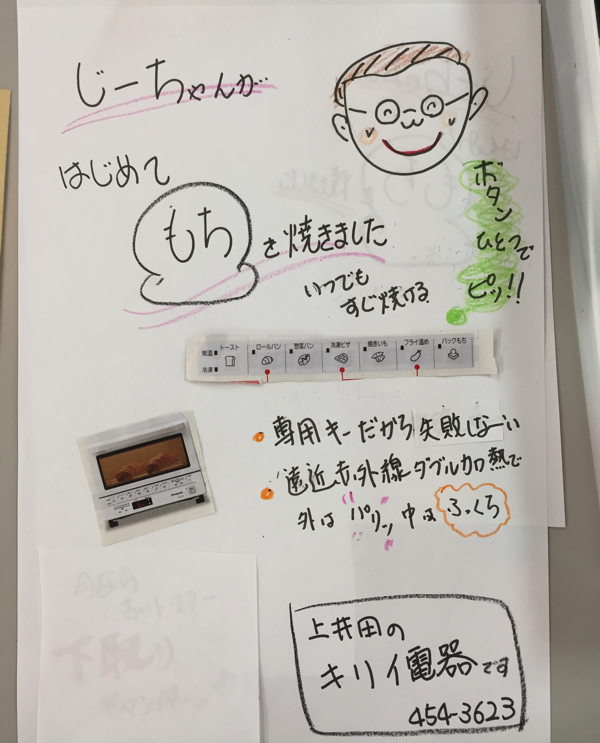 じーちゃんが
はじめて
もち
を焼きました
いつでも
すじ焼ける
ボタン
ひとつで
ピッ!!
常温
冷凍
トースト
ロールパン
惣菜パン
冷凍ピザ
焼きいも
フライ温め
パックもち
専用キーだから失敗しなーい
遠近赤外線ダブル加熱で
外はパリッ中はふっくら
上井田の
キリイ電器です
454-3623
下取り